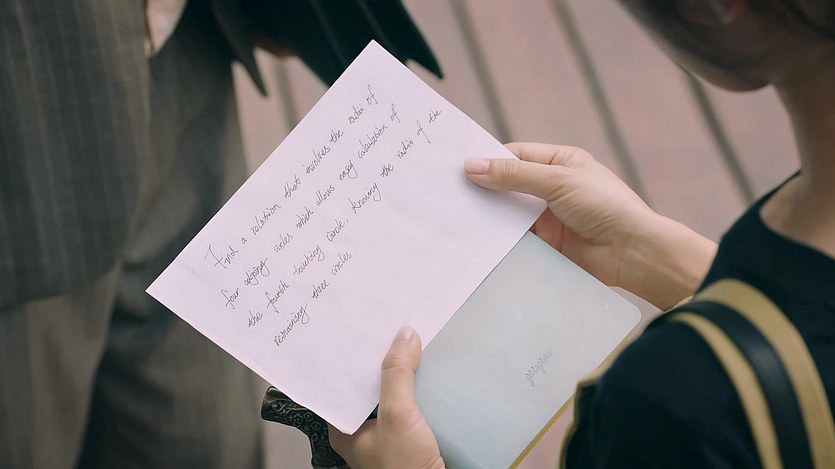 Find a relation that involves the radii of
four adjoing circles which allows easy calculation of
the fourth touching circle, knowing the radii of the
remaining three circles